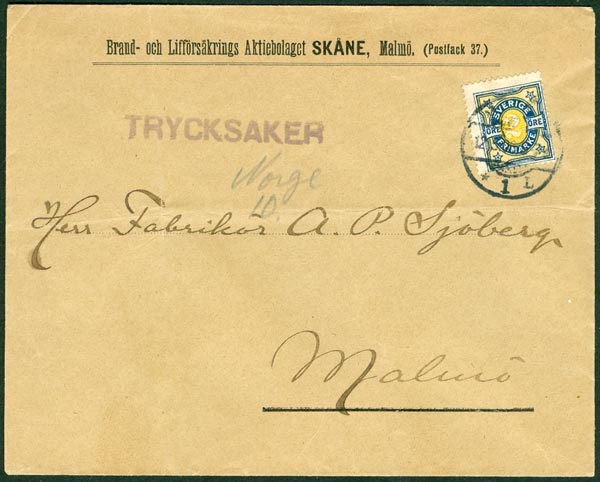 Brand- och Lifförsäkrings Aktiebolaget SKÅNE, Malmö. (Postfack 37.)
SVERIGE
ÖRE 2 ÖRE
FRIMÄRKE
* 1 L
TRYCKSAKER
Norge
10.
Herr Fabrikör A. P. Sjöberg
Malmö